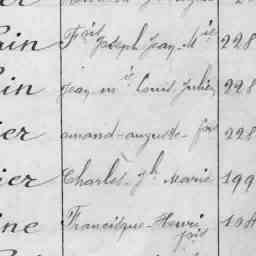 in Fois Joseph Jean M ie 228
in Jean m ie Louis Julien 228
ier amand-auguste-fois 228
ier Charles Jh Marie 199
ine Francisque-Henri fois 108